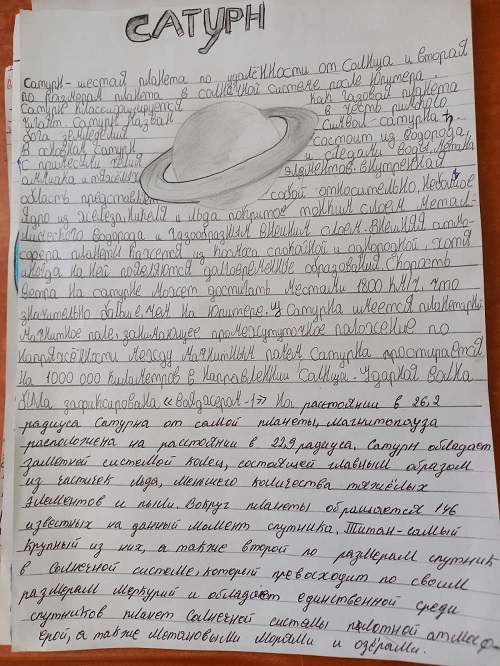 САТУРН
Сатурн-шестая планета по удалённости от Солнца и вторая
по размерам планета в солнечной системе после Юпитера.
Сатурн классифицируется как газовая планета
гигант Сатурн назван в честь римского
бога земледелия символ-сатурна ♄.
В основном Сатурн состоит из водорода,
с примесями гелия и следами воды, метана
аммиака и тяжёлых элементов. Внутренняя
область представляет собой относительно, небольшое
ядро из железа, никеля и льда покрытое тонким слоем метал-
лического водорода и газообразным внешним слоем. Внешняя атмо-
сфера планеты кажется из космоса спокойной и однородной, хотя
иногда на ней появляются долговременные образования. Скорость
ветра на сатурне может достигать местами 1800 км/ч, что
значительно больше, чем на Юпитере. У Сатурна имеется планетарное
магнитное поле, занимающее промежуточное положение по
напряжённости между магнитным полем Сатурна простирается
на 1000 000 километров в направлении Солнца. Ударная волна
была зафиксирована «Вояджером-1» На расстоянии в 26,2
радиуса Сатурна от самой планеты, магнитопауза
расположена на расстоянии в 22,9 радиуса. Сатурн обладает
заметной системой колец, состоящей главным образом
из частичек льда, меньшего количества тяжёлых
элементов и пыли. Вокруг планеты обращается 146
известных на данный момент спутника. Титан-самый
крупный из них, а также второй по размерам спутник
в Солнечной системе, который превосходит по своим
размерам меркурий и обладает единственной среди
спутников планет Солнечной системы плотной атмосф
ерой, а также метановыми морями и озёрами.